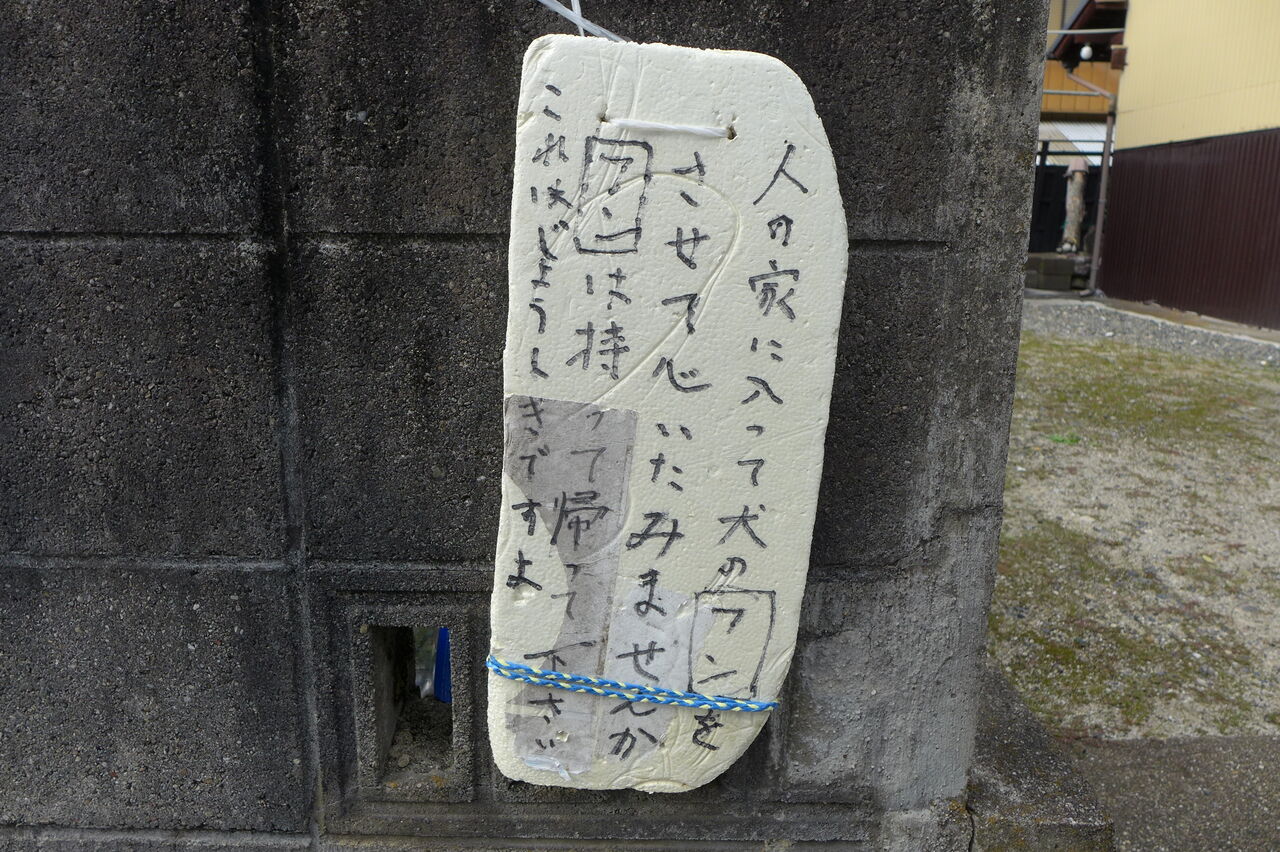 人の家に入って犬のフンを
させて心いたみませんか
フンは持って帰って下さい
これはじょうしきですよ